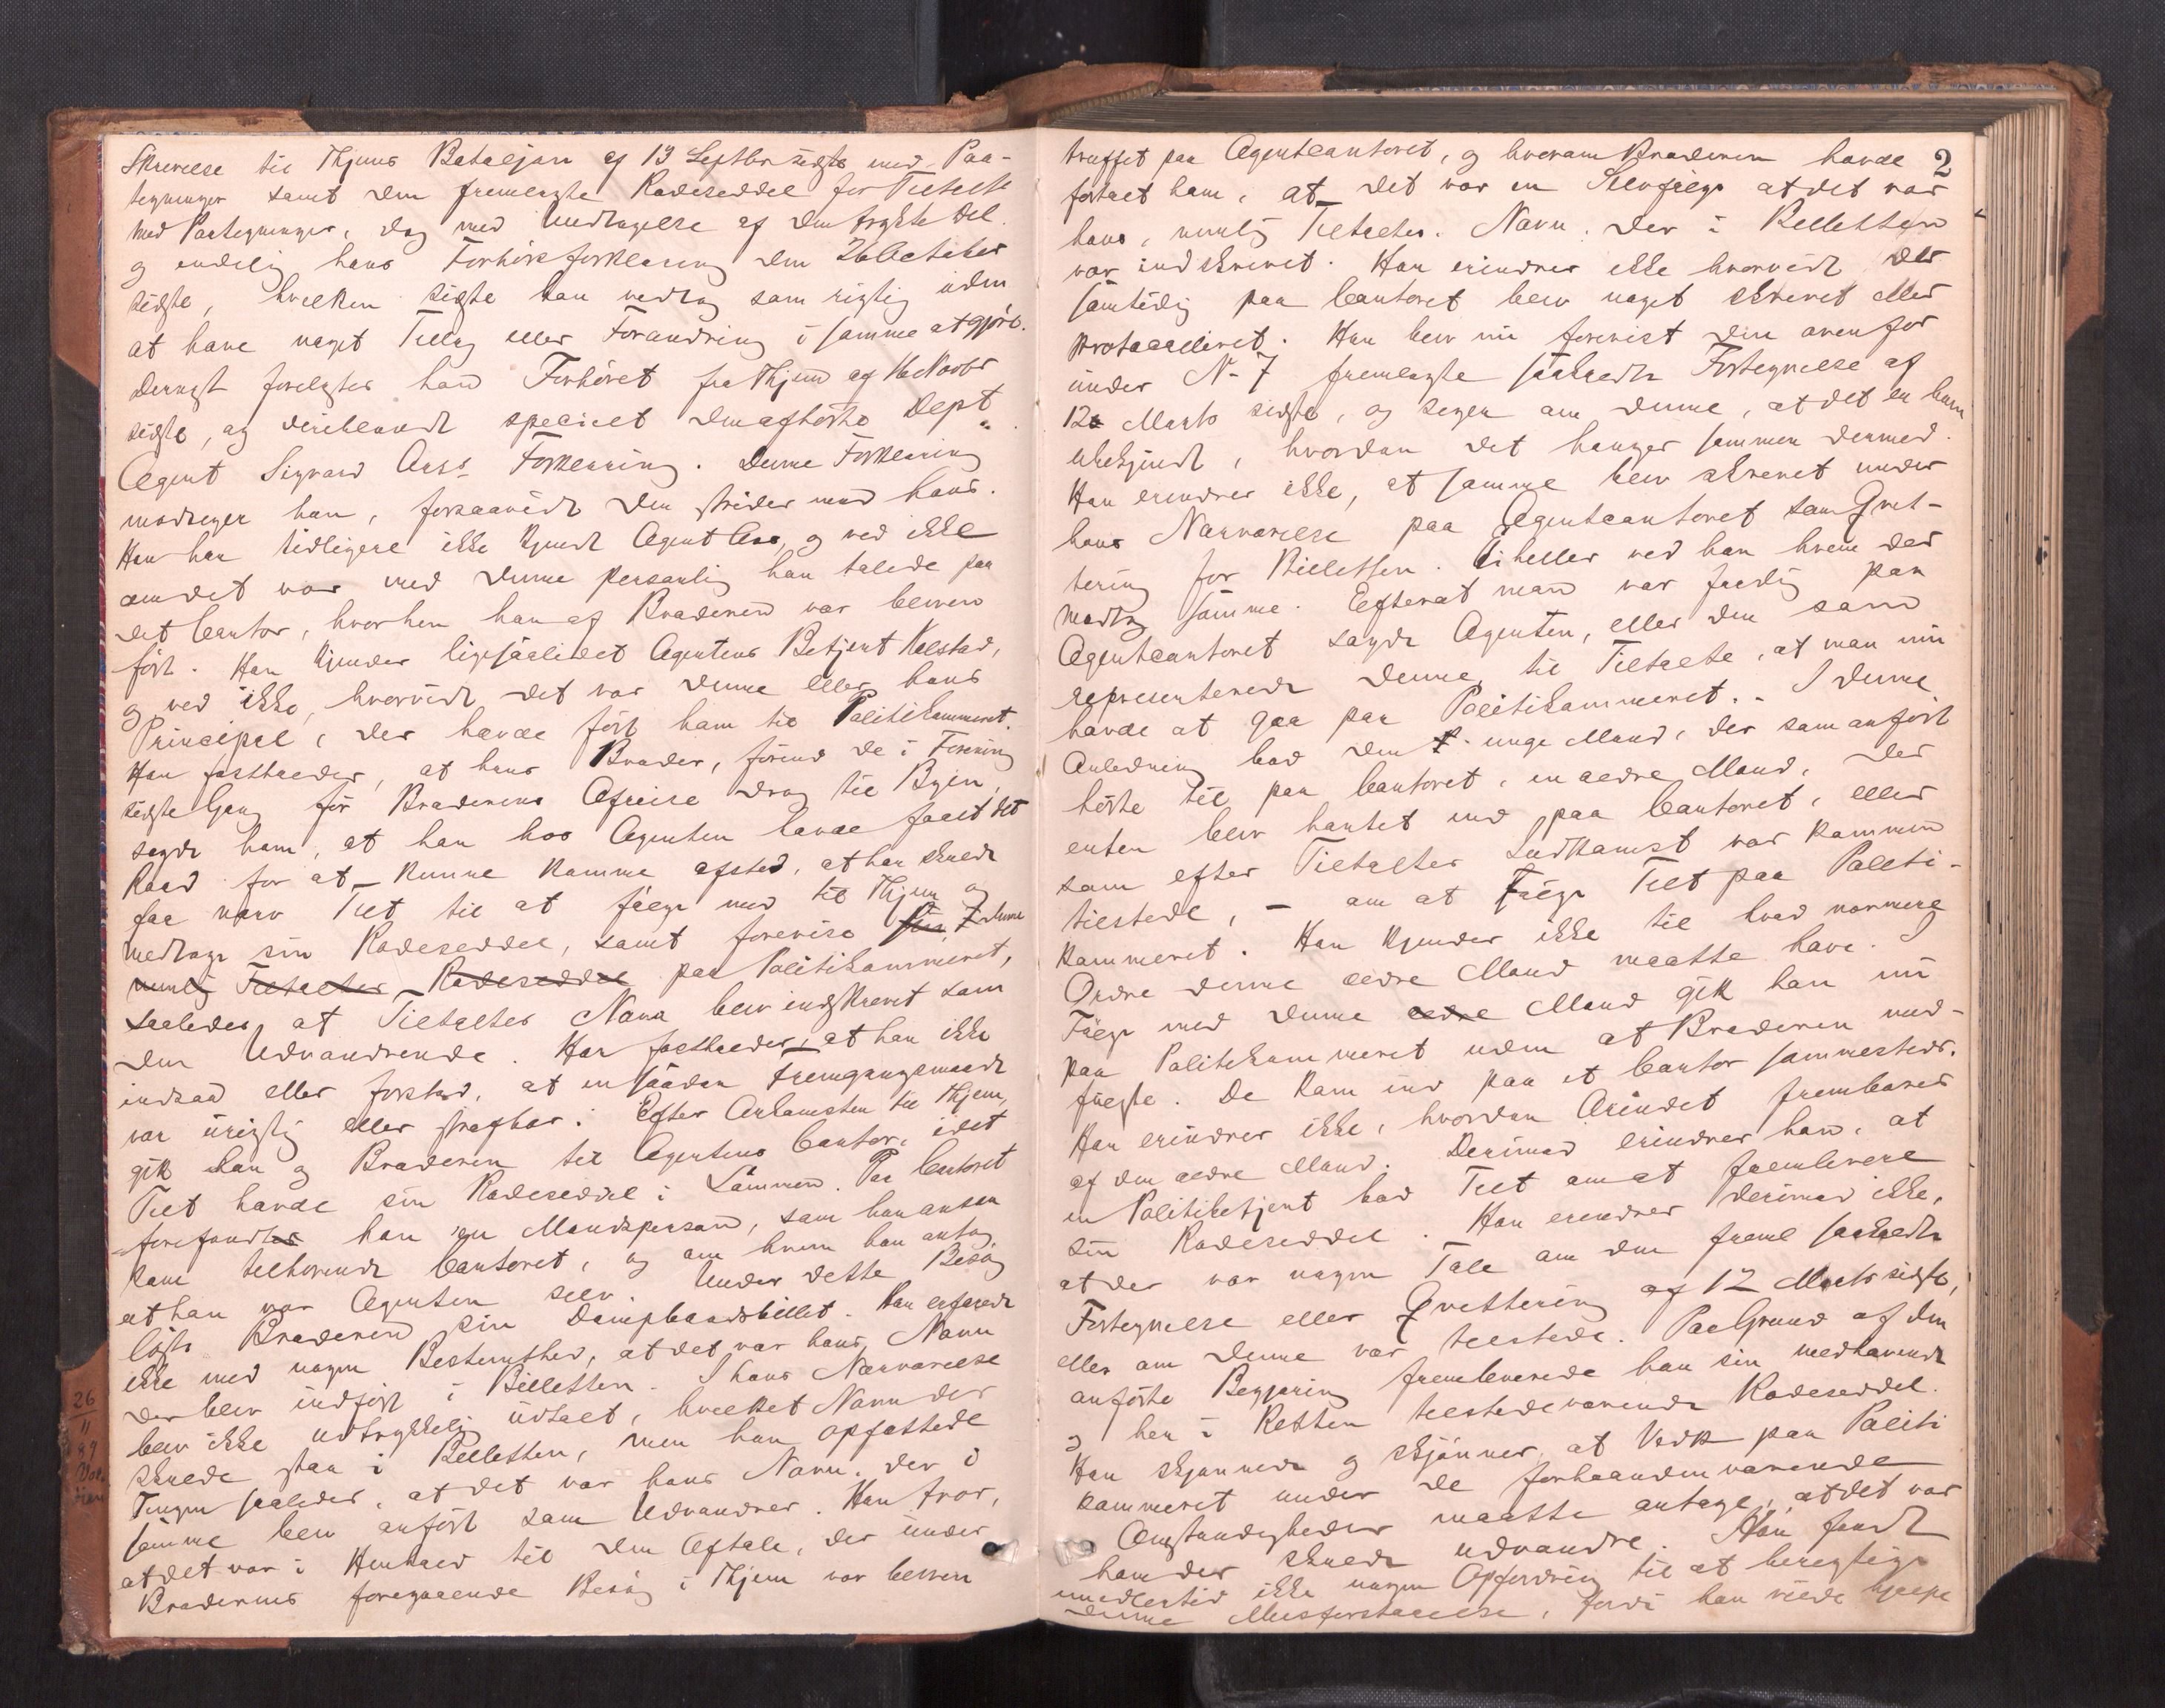 Skrivelse til Thjems Bataljon af 13 Septbr sidste med Paa-
tegninger samt den fremlagte Rodeseddel for Tiltalte
med Paategninger, dog med Undtagelse af den trykte Del.
og endelig hans Forhörsforklaring den 26 October
sidste, hvilken sidste han vedtog som rigtig uden
at have noget Tillæg eller Forandring i samme at gjöre.
Dernæst forelæstes ham Forhöret fra Thjem af 16 Novbr
sidste, og deriblandt specielt den afhörte Dept.
Agent Sigvard Aass Forklaring. Denne Forklaring
modsiger han, forsaavidt den strider mod hans.
Han har tidligere ikke kjendt Agent Aas, og ved ikke
om det var med denne personlig han talede paa
det Contor, hvorhen han af Broderen var bleven
fört. Han kjender ligesaalidet Agentens Betjent Kolstad,
og ved ikke, hvorvidt det var denne eller hans
Principal, der havde fört ham til Politikammeret.
Han fastholder, at hans Broder, förend de i Forening
sidste Gang för Broderens Afreise drog til Byen,
sagde ham, at han hos Agenten havde faaet det
Raad for at kunne komme afsted, at han skulde
faa narv Tilt til at fölge med til Thjem og
medtage sin Rodeseddel, samt forevise denne
nemlig Tiltaltes Rodeseddel paa Politikammeret,
saaledes at Tiltaltes Navn blev indskrevet som
den Udvandrende. Han fastholder, at han ikke
indsaa eller forstod, at en saadan Fremgangsmaade
var urigtig eller strafbar. Efter Ankomsten til Thjem,
gik han og Broderen til Agentens Contor, idet
Tilt havde sin Rodeseddel i Lommen. Paa Contoret
forefandtes han en Mandsperson, som han ansaa
som tilhörende Contoret, og om hvem han antog
at han var Agenten selv. Under dette Besög
löste Broderen sin Dampbaadsbillet. Han erfarede
ikke med nogen Bestemthed, at det var hans Navn
der blev indfört i Billetten. I hans Nærværelse
blev ikke udtrykkelig udtalt, hvilket Navn der
skulde staa i Billetten, men han opfattede
Tingen saaledes, at det var hans Navn, der i
samme blev anfört som Udvandrer. Han tror,
at det var i Henhold til den Aftale, der under
Broderens foregaaende Besög i Thjem var bleven
26
11
89
2
truffet paa Agentcontoret, og hvorom Broderen havde
fortalt ham, at det var en Selvfölge at det var
hans, nemlig Tiltaltes, Navn, der i Billetten
var indskrevet. Han erindrer ikke hvorvidt der
samtidig paa Contoret blev noget skrevet eller
protocolleret. Han blev nu forevist den ovenfor
under No 7 fremlagte saakaldte Fortegnelse af
12 Marts sidste, og siger om denne, at det er ham
ubekjendt, hvordan det hænger sammen dermed.
Han erindrer ikke, at samme blev skrevet under
hans Nærværelse paa Agentcontoret som Qvit-
tering for Billetten. Ei heller ved han hvem der
modtog samme. Efterat man var færdig paa
Agentcontoret sagde Agenten, eller den som
representerede denne, til Tiltalte, at man nu
havde at gaa paa Politikammeret. - I denne
Anledning bad den unge Mand, der som anfört
hörte til paa Contoret, en ældre Mand, der
enten blev hentet ind paa Contoret, eller
som efter Tiltaltes Indkomst var kommen
tilstede, - om at fölge Tilt paa Politi-
kammeret. Han kjender ikke til hvad nærmere
Ordre denne ældre Mand maatte have. I
Fölge med denne ældre Mand gik han nu
paa Politikammeret uden at Broderen med-
fulgte. De kom ind paa et Contor sammesteds.
Han erindrer ikke, hvordan Ærindet frembares
af den ældre Mand. Derimod erindrer han, at
en Politibetjent bad Tilt om at fremlevere
sin Rodeseddel. Han erindrer derimod ikke,
at der var nogen Tale om den freml saakaldte
Fortegnelse eller Qvittering af 12 Marts sidste,
eller om denne var tilstede. Paa Grund af den
anförte Begjæring fremleverede han sin medhavende
og her i Retten tilstedeværende Rodeseddel.
Han skjönnede og skjönner, at Vedk paa Politi
kammeret under de forhaandenværende
Omstændigheder maatte antage, at det var
ham der skulde udvandre. Han fandt
imidlertid ikke nogen Opfordring til at berigtige
denne Misforstaaelse, fordi han vilde hjælpe